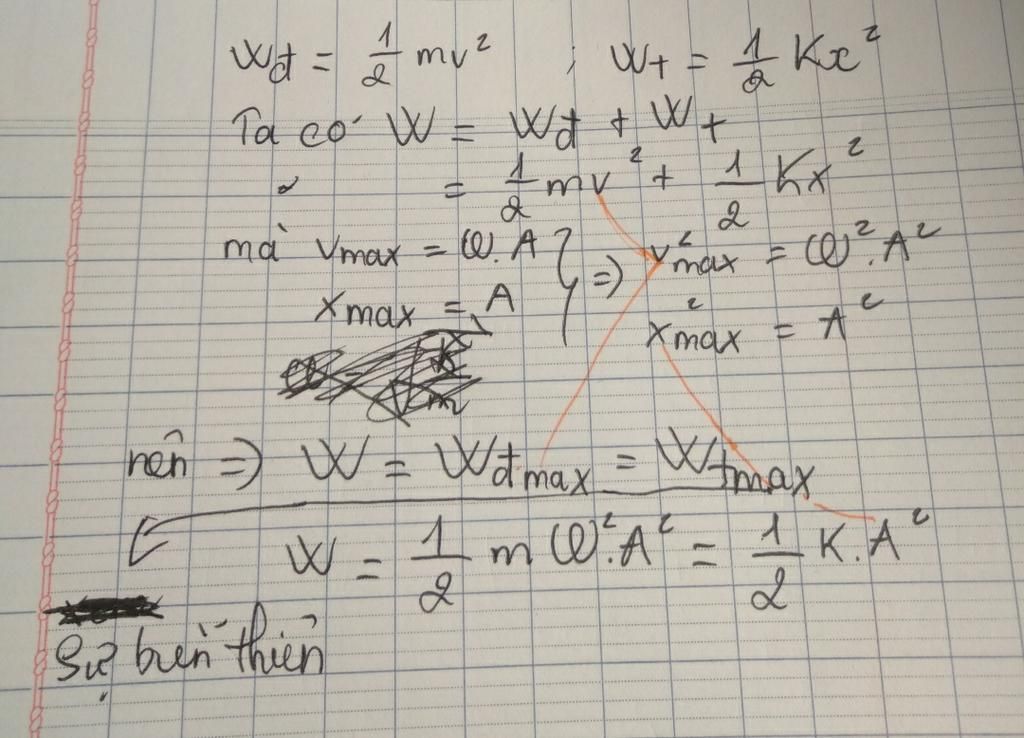 Wđ = 1/2 mv² ; Wt = 1/2 Kx²
Ta có W = Wđ + Wt
= 1/2 mv² + 1/2 Kx²
mà vmax = ω.A } => v²max = ω².A²
xmax = A x²max = A²
nên => W = Wđmax = Wtmax
W = 1/2 m ω².A² = 1/2 K.A²
Sự biến thiên